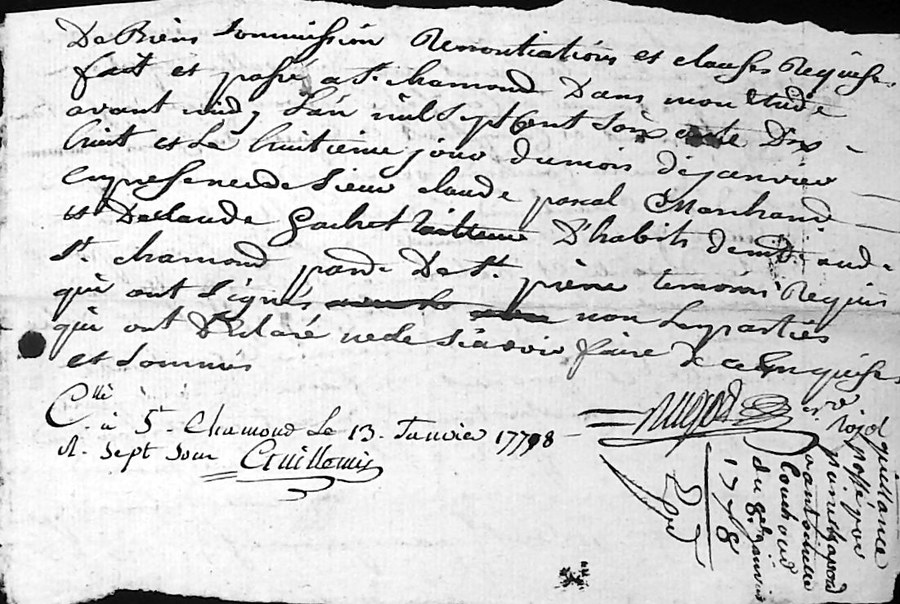 De Biens Soummission Renontiations et clauses Requises
fait et passé a St. chamond Dans mon Etude
avant midy L'an mil Sept Cent Soix ante Dix
huit et Le huitieme jour du mois de janvier
en presence de Sieur claude pascal Marchand
et De claude Gachet tailleur D'habits dem.t aud.
St. chamond par.de De St. pierre temoins Requis
qui ont Signés non Les parties
qui ont Declaré ne le Scavoir faire de ce Enquises
et Sommés
C.llé à St. Chamond Le 13. Janvier 1778
R. Sept Sous
quittance
passé par
du 8. janvier
1778